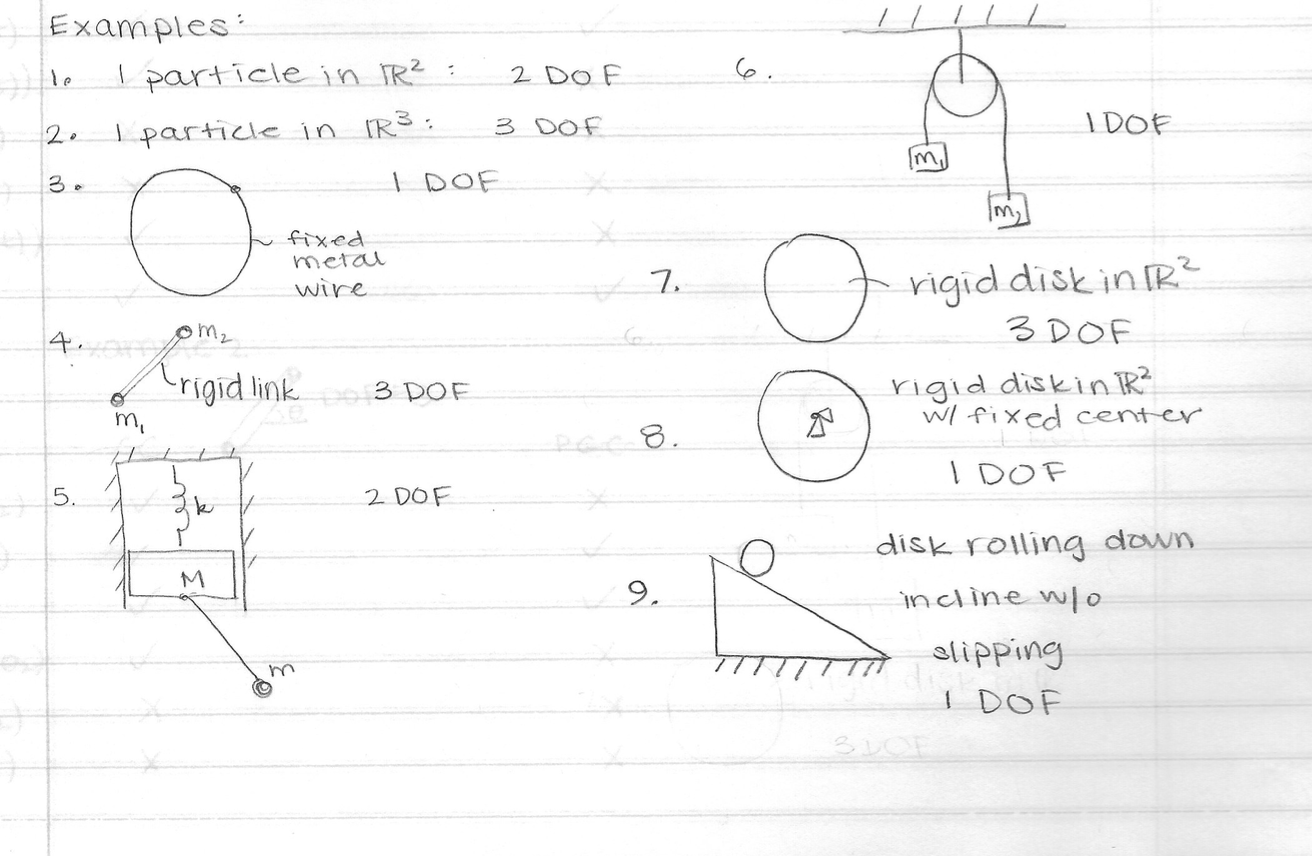 Examples:
1. 1 particle in ℝ² : 2 DOF
2. 1 particle in ℝ³: 3 DOF
3. 1 DOF
fixed
metal
wire
4. m₂
rigid link 3 DOF
m₁
5. k 2 DOF
M
m
6.
1 DOF
m₁
m₂
7. rigid disk in ℝ²
3 DOF
8. rigid disk in ℝ²
w/ fixed center
1 DOF
9. disk rolling down
incline w/o
slipping
1 DOF
3 DOF